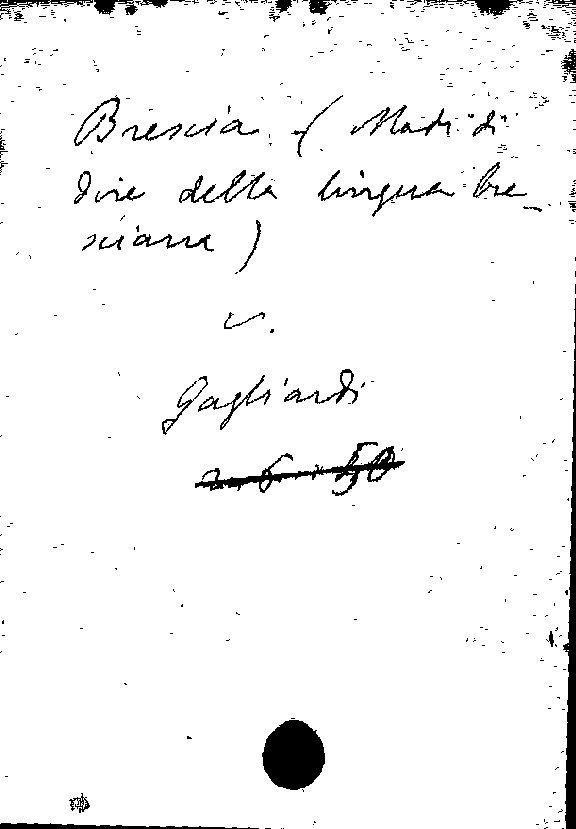 Brescia (Modi di
dire della lingua bre_
sciana)
v.
Gagliardi